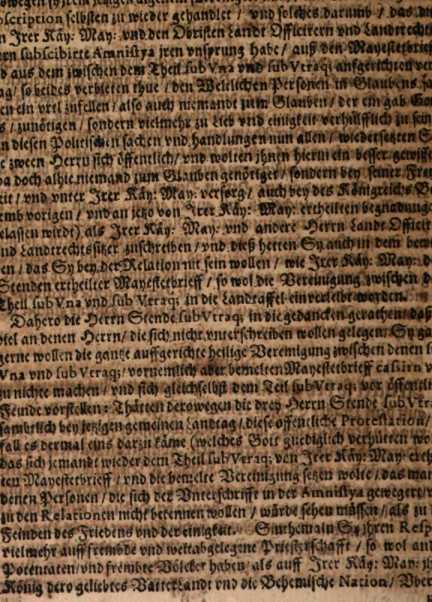 bscription selbsten zu wieder gehandlet / vnd solches darumb / das
n Irer Käy: May: vnd den Obristen Landt Officirern vnd Landrecht
rn subscibirte Amnistya jren vrsprung habe / auß den Mayestetbrieff
d aus dem zwischen dem Theil sub Vna vnd sub Vtraq; auffgerichten
ag / so beides verbieten thue / den Weltlichen Personen in Glaubens
en ein vrtl zufellen / also auch niemandt zum Glauben / der ein gab Got
s / zunötigen / sondern vielmehr zu Lieb vnd einigkeit verhilfflich zu sein
n diesen Politischen sachen vnd handlungen nun allen / wiedersetzten
e zween Herrn sich öffentlich / vnd wolten jhnen hierin ein besser gewissen
da doch alhie niemand zum Glauben genötiget / sondern bey seiner
eit / vnd vnter Irer Käy: May: versorg / auch bey des Königreichs
emb vorigen / vnd an jetzo von Irer Käy: May: ertheilten begnadung
elassen wirdt) als Irer Käy: May: vnd andere Herrn Landt Officir
nd Landrechtssitzer zuschreiben / vnd dieß hetten Sy auch in dem
en / das Sy bey der Relation nit sein wollen / wie Irer Käy: May:
Stenden ertheilter Mayestetbrieff / so wol die Vereinigung zwischen
Theil sub Vna vnd sub Vtraq; in die Landtaffel einverleibt worden.
Dahero die Herrn Stende sub Vtraq; in die gedancken gerathen / daß
viel an denen Herrn / die sich nicht vnterschreiben wollen gelegen: Sy
gerne wollen die gantze auffgerichte heilige Vereinigung zwischen denen
Vna vnd sub Vtraq; vornemlich aber bemelten Mayestetbrieff cassirn
zu nichte machen / vnd sich gleichselbst dem Teil sub Vtraq; vor öffentli
Feinde vorstellen: Thätten derowegen die drey Herrn Stende sub Vtra
samblich bey jetzigen gemeinen Landtag / diese offentliche Protestation /
fall es dermal eins darzu käme (welches Gott gnediglich verhütten wo
das sich jemandt wieder dem Theil sub Vtraq; von Irer Käy: May: erth
ten Mayestetbrieff / vnd die bemelte Vereinigung setzen wolte / das
denen Personen / die sich der Vnterschrifft in der Amnistya gewegert /
zu den Relationen nicht bekennen wollen / würde sehen müssen / als zu
Feinden des Friedens vnd der einigkeit. Sinthemaln Sy jhren Resp
vielmehr auff frembde vnd weitabgelegene Priesterschafft / so wol an
Potentaten vnd frembte Völcker haben / als auff Irer Käy: May:
König dero geliebtes Vatterlandt vnd die Behemische Nation / Vber